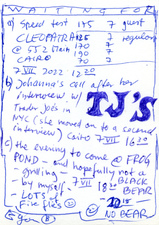 WAITING FOR
a) Speed test 175 7 guest
CLEOPATRA 125 7 regulars
@ ST 2 170 7
CAIRO 190 ?
70 ?
7 VII 2022 12 20
b) Johanna's call after her
interview w/ TJ'S
Trader Joe's in
NYC (she moved on to a second
interview) Cairo 7 VII 16 20
c) the evening to come @ FROG
POND - and hopefully not a
- grilling - BLACK
by myself - 7 VII 18 20 BEAR
- LOTS
Fire flies
NO BEAR